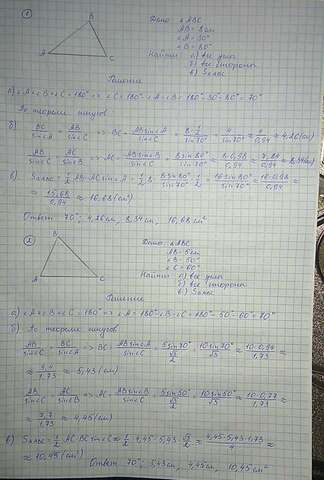 ①
B
A
C
Дано: △ABC
AB = 8см
∠A = 30°
∠B = 80°
Найти: а) все углы
б) все стороны
в) SΔABC
Решение
а) ∠A+∠B+∠C=180° => ∠C=180°-∠A-∠B=180°-30°-80°=70°
По теореме синусов
б) BC/sin∠A = AB/sin∠C => BC = AB sin∠A/sin∠C = 8·1/2/sin70° = 4/sin70° ≈ 4/0,94 ≈ 4,26(см)
AB/sin∠C = AC/sin∠B => AC = AB sin∠B/sin∠C = 8 sin80°/sin70° ≈ 8·0,98/0,94 ≈ 7,84/0,94 ≈ 8,34(см)
в) SΔABC = 1/2 AB·AC sin∠A = 1/2·8·8 sin80°/sin70°·1/2 = 16 sin80°/sin70° ≈ 16·0,98/0,94 ≈
≈ 15,68/0,94 ≈ 16,68(см²)
Ответ: 70°; 4,26см, 8,34см, 16,68см²
②
B
A
C
Дано: △ABC
AB = 5см
∠B = 50°
∠C = 60°
Найти: а) все углы
б) все стороны
в) SΔABC
Решение
а) ∠A+∠B+∠C=180° => ∠A=180°-∠B-∠C=180°-50°-60°=70°
б) По теореме синусов
AB/sin∠C = BC/sin∠A => BC = AB sin∠A/sin∠C = 5 sin70°/(√3/2) = 10 sin70°/√3 ≈ 10·0,94/1,73 ≈
≈ 9,4/1,73 ≈ 5,43(см)
AB/sin∠C = AC/sin∠B => AC = AB sin∠B/sin∠C = 5 sin50°/(√3/2) = 10 sin50°/√3 ≈ 10·0,77/1,73 ≈
≈ 7,7/1,73 ≈ 4,45(см)
в) SΔABC = 1/2 AC·BC sin∠C ≈ 1/2·4,45·5,43·√3/2 ≈ 4,45·5,43·1,73/4 ≈
≈ 10,45(см²)
Ответ: 70°; 5,43см, 4,45см, 10,45см²